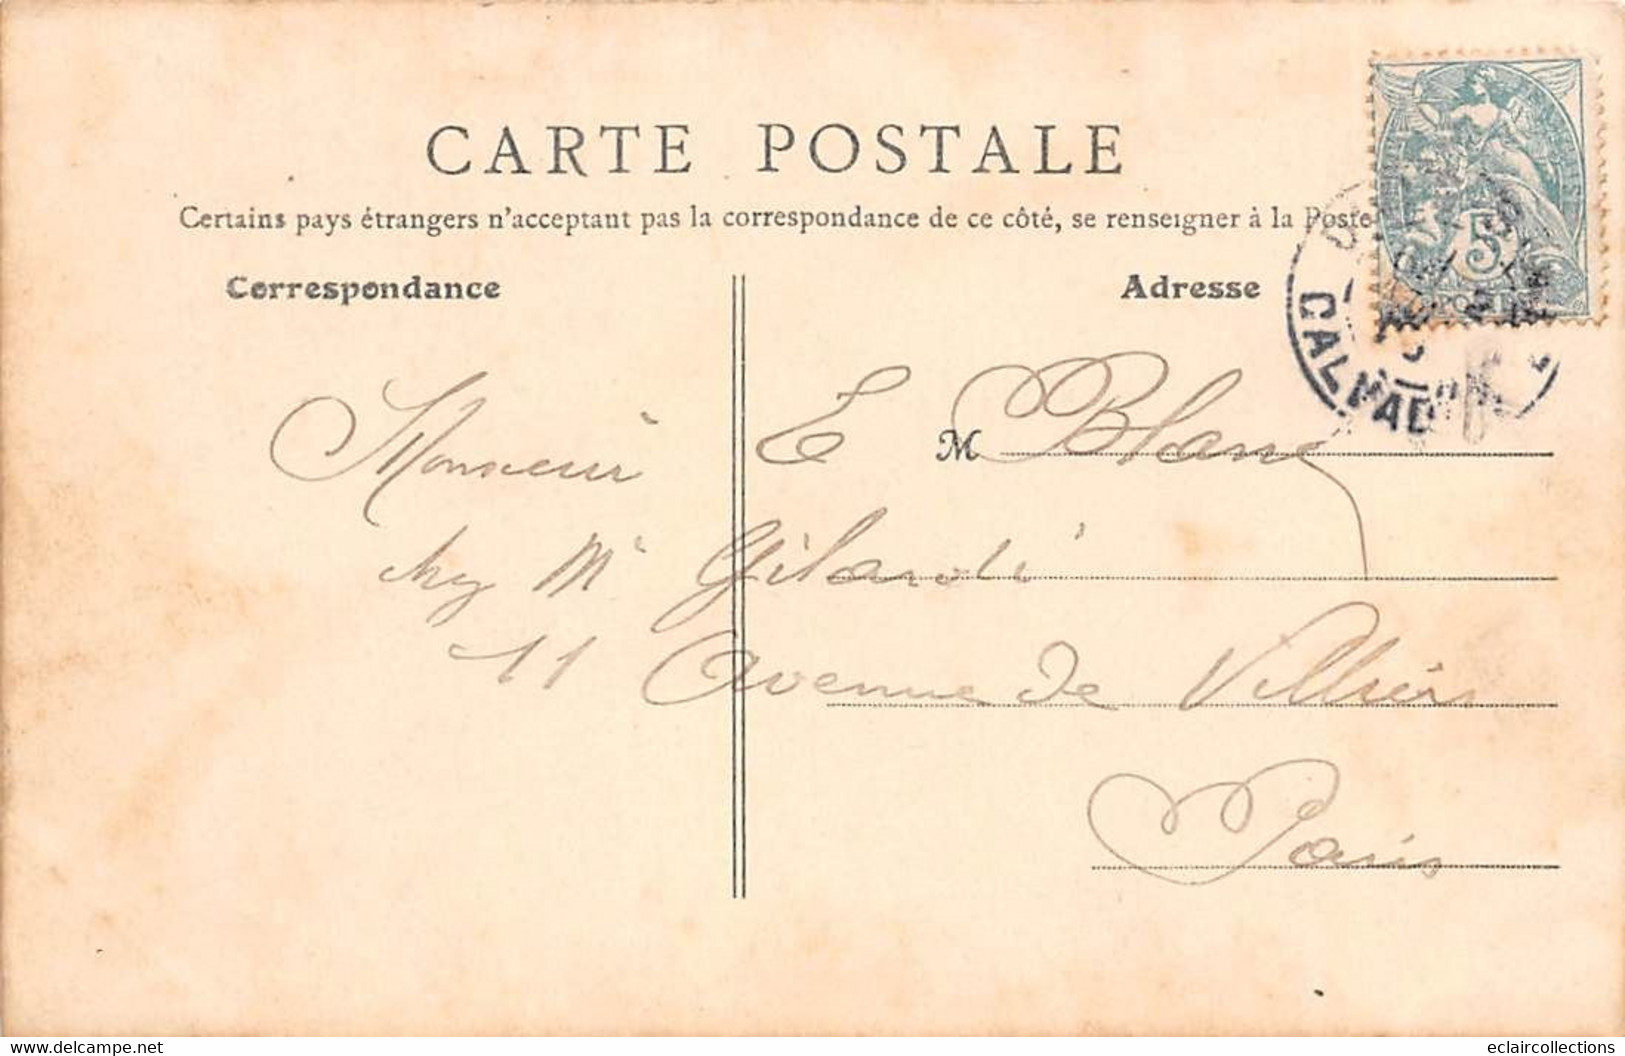 CARTE POSTALE
Certains pays étrangers n'acceptant pas la correspondance de ce côté, se renseigner à la Poste
Correspondance
Adresse
Monsieur E M Blanc
chez Mr Gilardi
11 Avenue de Villiers
Paris
5
CALVADOS
www.delcampe.net
eclaircollections